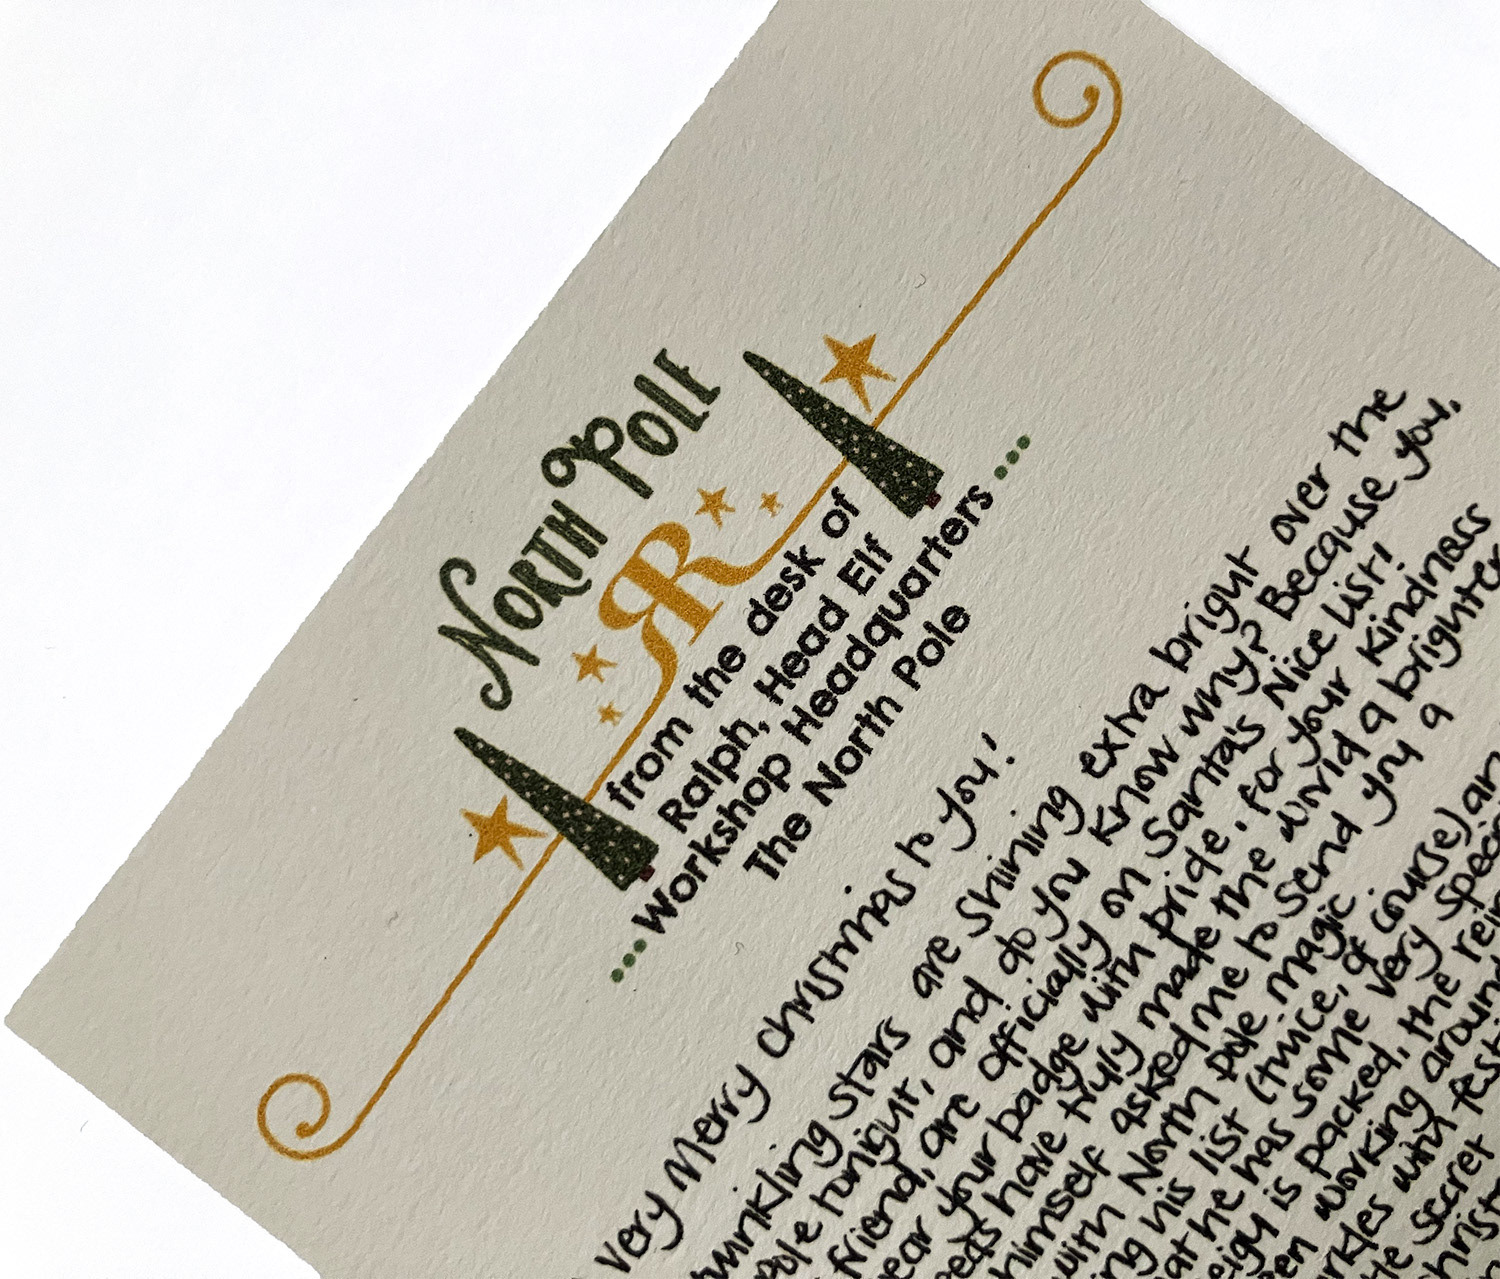 North Pole
RR
from the desk of
Ralph, Head Elf
Workshop Headquarters
The North Pole
Very Merry Christmas to you!
twinkling stars are shining extra bright over the
Pole tonight, and do you know why? Because you,
friend, are officially on Santa's Nice List!
your badge with pride, for your kindness
have truly made the world a
himself asked me to send you a
with North Pole magic.
his list (twice, of course)
he has some very
is packed, the
working around
with
secret